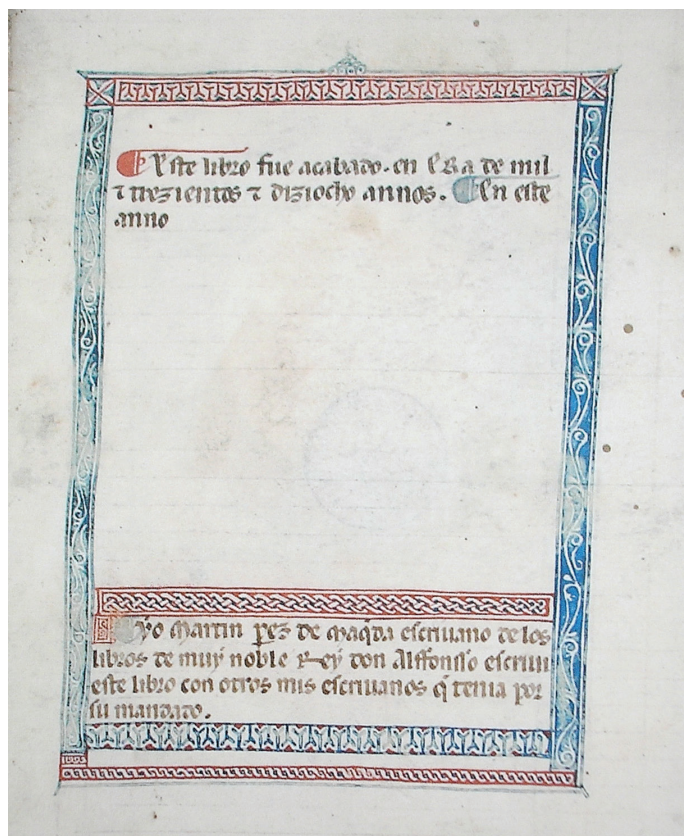 Este libro fue acabado. en Era de mil
⁊ trezientos ⁊ diziocho annos. En este
anno
Yo Martin perez de maqda escriuano de los
libros de muy noble Rey don Alffonsso escriui
este libro con otros mis escriuanos q̃ tenia por
su mandado.